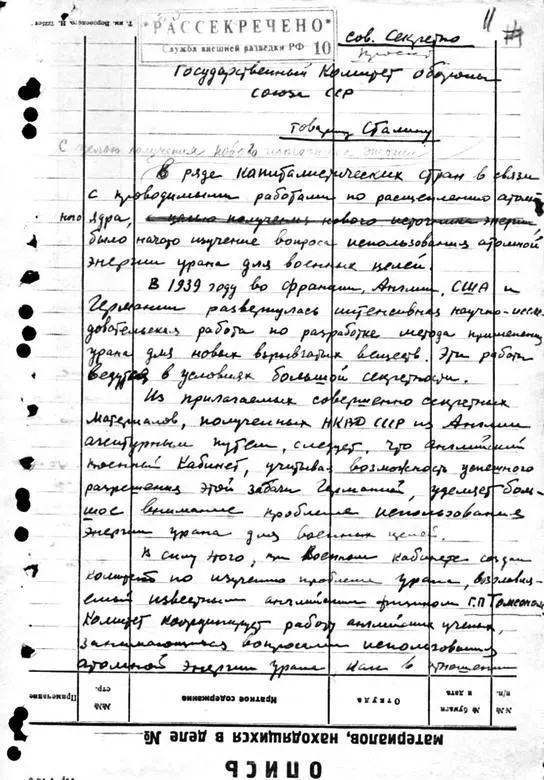 Т. им. Воровского,
*РАССЕКРЕЧЕНО*
Служба внешней разведки РФ 10
11
сов. Секретно
Государственный Комитет Обороны
Союза ССР
товарищу Сталину
С целью получения нового источника энергии
В ряде капиталистических стран в связи
с проводимыми работами по расщеплению атом
ного ядра, с целью получения нового источника энергии,
было начато изучение вопроса использования атомной
энергии урана для военных целей.
В 1939 году во Франции, Англии, США и
Германии развернулась интенсивная научно-иссле
довательская работа по разработке метода применения
урана для новых взрывчатых веществ. Эти работы
ведутся в условиях большой секретности.
Из прилагаемых совершенно секретных
материалов, полученных НКВД СССР из Англии
агентурным путем, следует, что английский
Военный Кабинет, учитывая возможность успешного
разрешения этой задачи Германией, уделяет боль
шое внимание проблеме использования
энергии урана для военных целей.
В силу этого, при Военном кабинете создан
комитет по изучению проблемы урана, возглавля
емый известным английским физиком Г.П. Томсоном.
Комитет координирует работу английских ученых,
занимающихся вопросами использования
атомной энергии урана как в отношении
Примечание
№№ стр.
Краткое содержание
Откуда
№ бумаги и дата
№№ п/п.
материалов, находящихся в деле №
ОПИСЬ